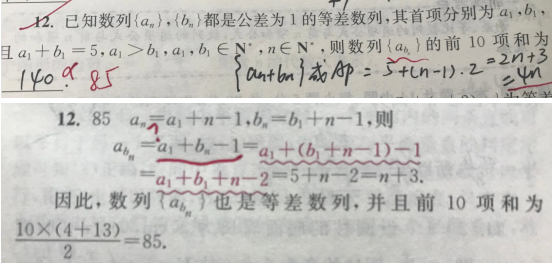 12. 已知数列{aₙ},{bₙ}都是公差为1的等差数列,其首项分别为a₁,b₁,
且a₁+b₁=5,a₁>b₁,a₁,b₁∈N*,n∈N*,则数列{a_{bₙ}}的前10项和为
140 85 {an+bn}成AP = 5+(n-1)·2 =2n+3
=4n
12. 85 aₙ=a₁+n-1,bₙ=b₁+n-1,则
a_{bₙ}=a₁+bₙ-1=a₁+(b₁+n-1)-1
=a₁+b₁+n-2=5+n-2=n+3.
因此,数列{a_{bₙ}}也是等差数列,并且前10项和为
10×(4+13)/2=85.